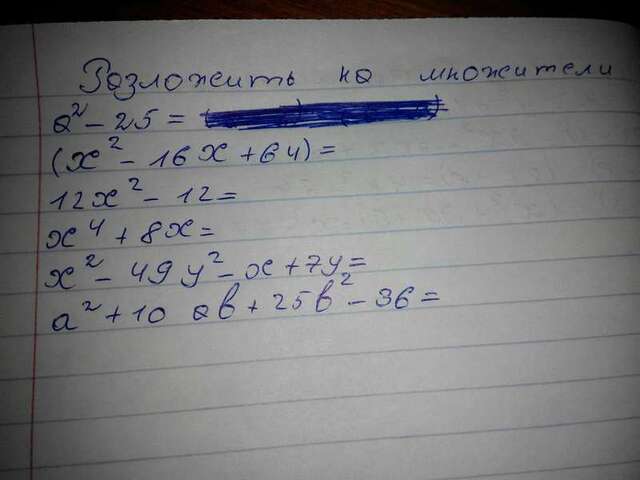 Разложить на множители
a² - 25 =
(x² - 16x + 64) =
12x² - 12 =
x⁴ + 8x =
x² - 49y² - x + 7y =
a² + 10 ab + 25b² - 36 =